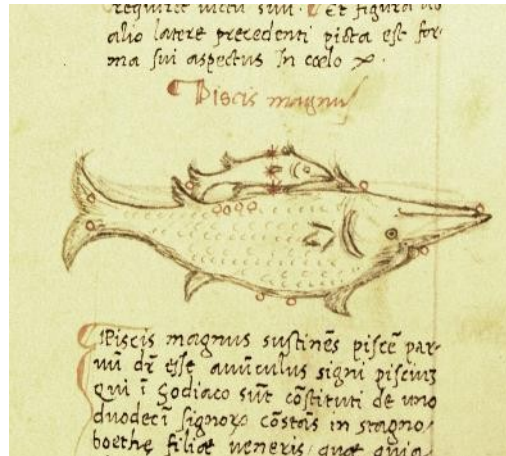 requirit victu suu. Et figura
alio latere precedenti picta est for-
ma sui aspectus in cœlo
Piscis magnus
Piscis magnus sustinēs piscē par-
vū dr̄ esse avūculus signi pisciuʒ
qui ī Zodiaco sūt cōstituti de uno
duodecī signorꝝ cōstās in stagno
boethe filiæ veneris quæ quia